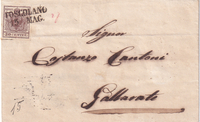 TOSCOLANO
MAG.
Signor
Costanzo Cantoni
Gallarate
15